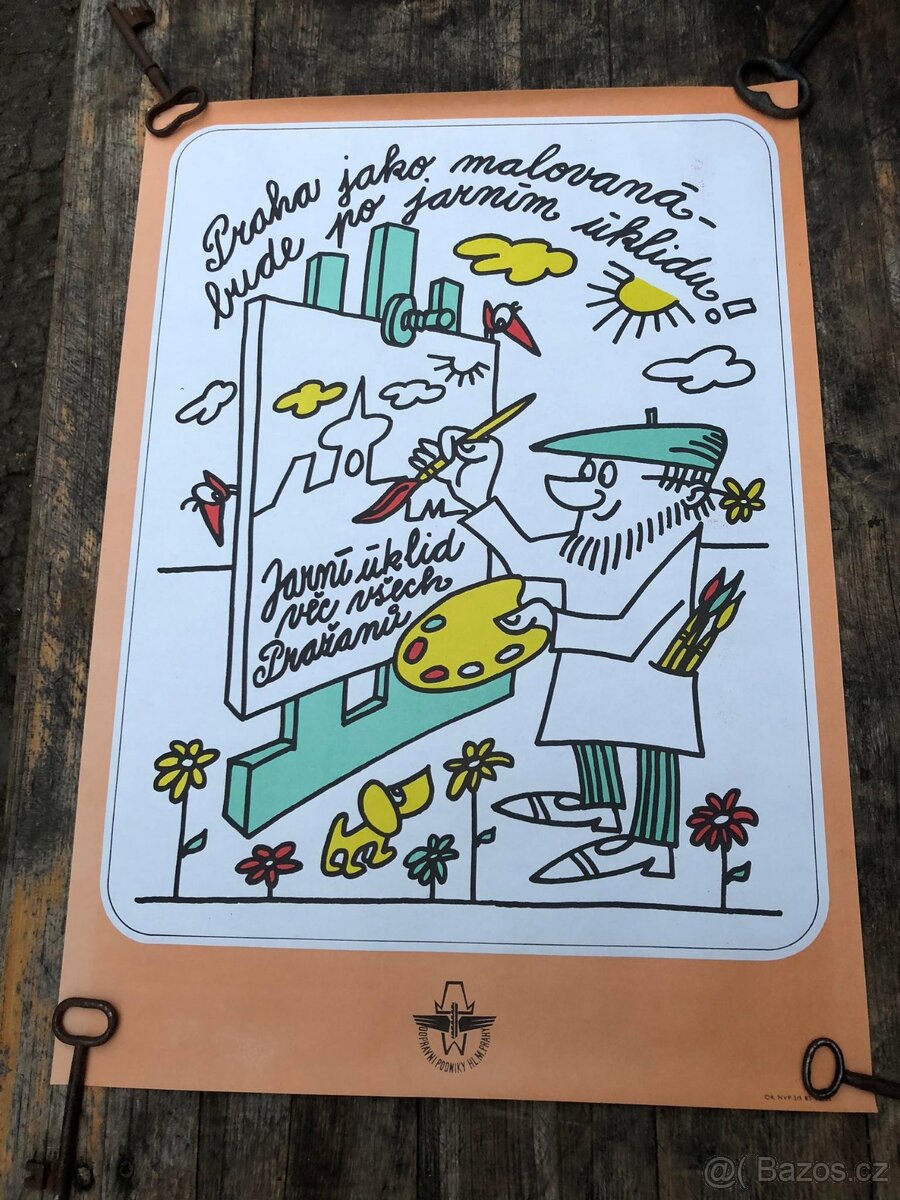 Praha jako malovaná -
bude po jarním úklidu!
Jarní úklid
věc všech
Pražanů
DOPRAVNÍ PODNIKY HL. M. PRAHY
@( Bazos.cz